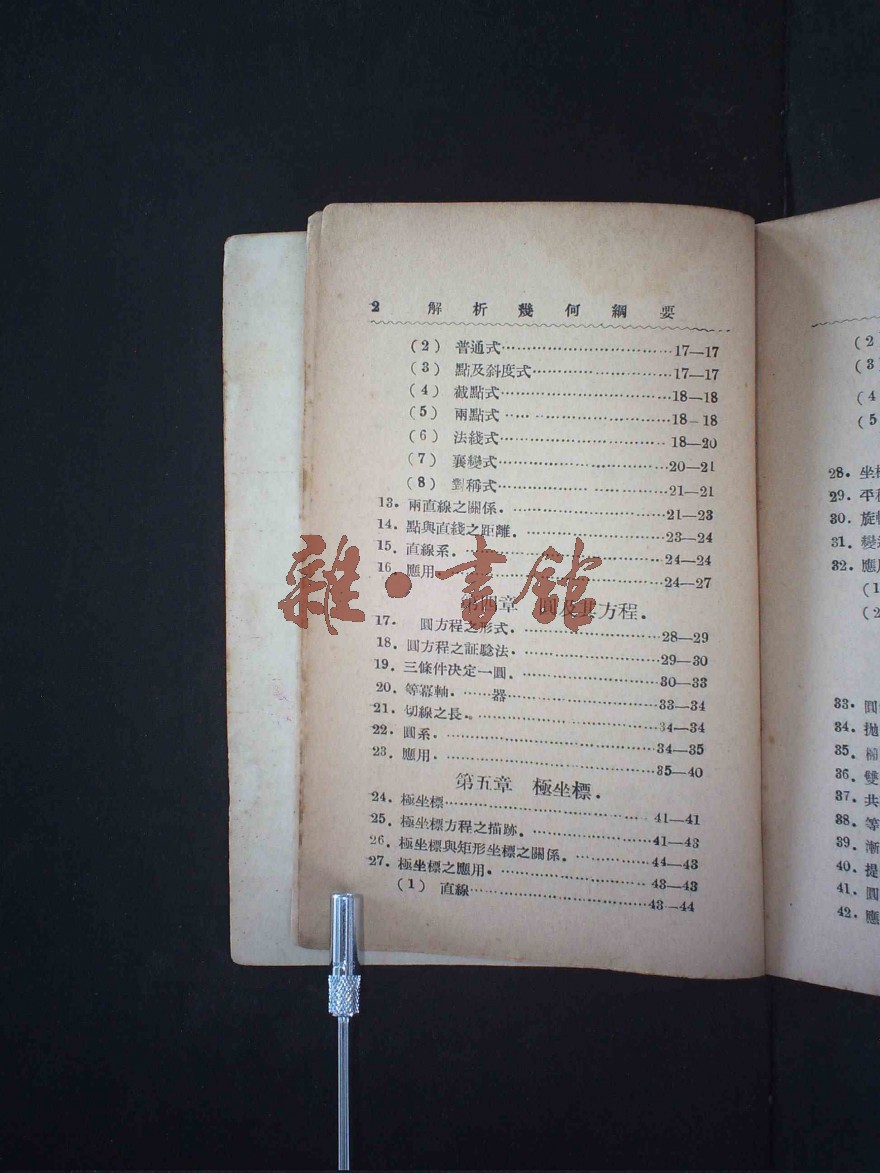 2 解析幾何綱要
(2) 普通式……17—17
(3) 點及斜度式……17—17
(4) 截點式……18—18
(5) 兩點式……18—18
(6) 法綫式……18—20
(7) 襄變式……20—21
(8) 對稱式……21—21
13. 兩直線之關係.……21—23
14. 點與直綫之距離.……23—24
15. 直線系.……24—24
16. 應用……24—27
第四章 圓及其方程.
17. 圓方程之形式.……28—29
18. 圓方程之証騐法.……29—30
19. 三條件决定一圓.……30—33
20. 等冪軸.……器……33—34
21. 切線之長.……34—34
22. 圓系.……34—35
23. 應用.……35—40
第五章 極坐標.
24. 極坐標……41—41
25. 極坐標方程之描跡.……41—43
26. 極坐標與矩形坐標之關係.……44—43
27. 極坐標之應用.……43—43
(1) 直線……43—44
雜·書館
(2
(3
(4
(5
28. 坐
29. 平
30. 旋
31.
32. 應
(1
(2
33. 圓
34. 拋
35.
36. 雙
37. 共
38. 等
39. 漸
40. 提
41. 圓
42. 應